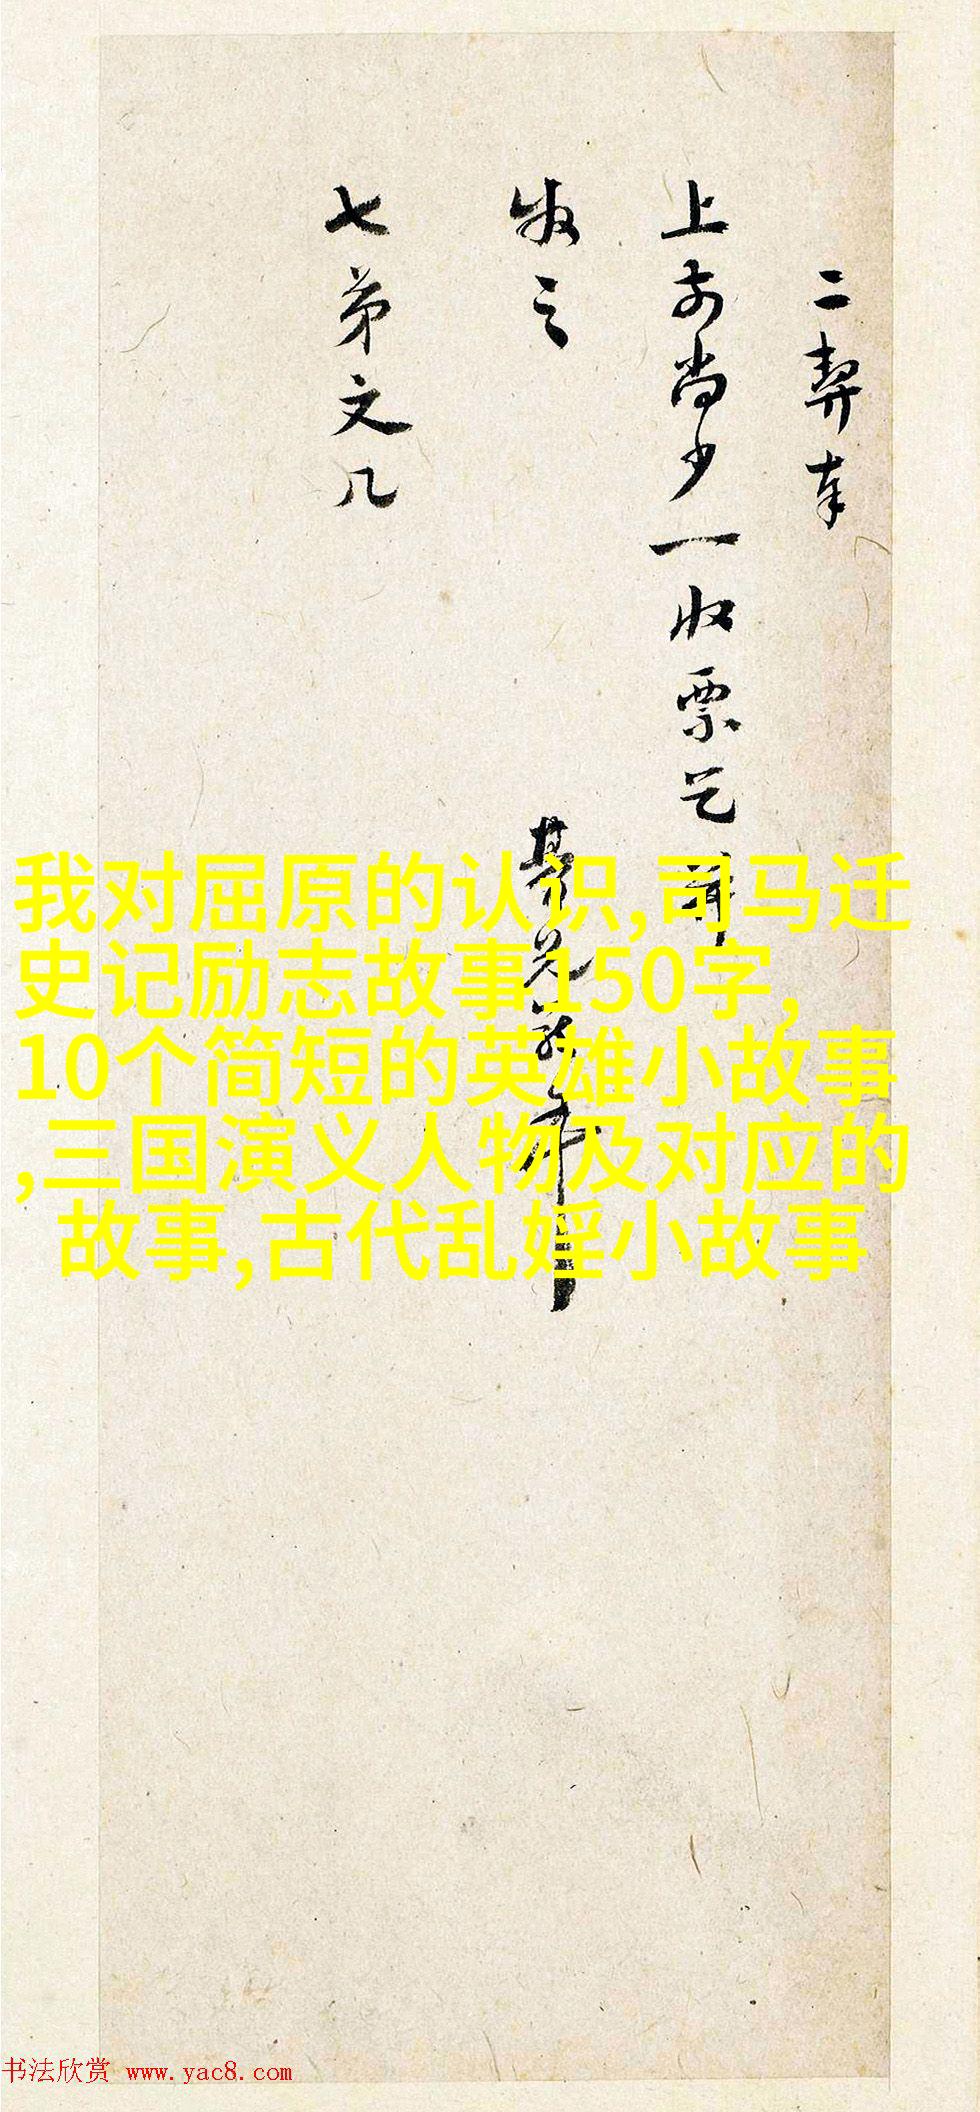 二契奉
上尚少一收票乞
收之
七弟文几
我对屈原的认识,司马迁
史记励志故事150字,
10个简短的英雄小故事
,三国演义人物及对应的
故事,古代乱婬小故事
书法欣赏 www.yac8.com